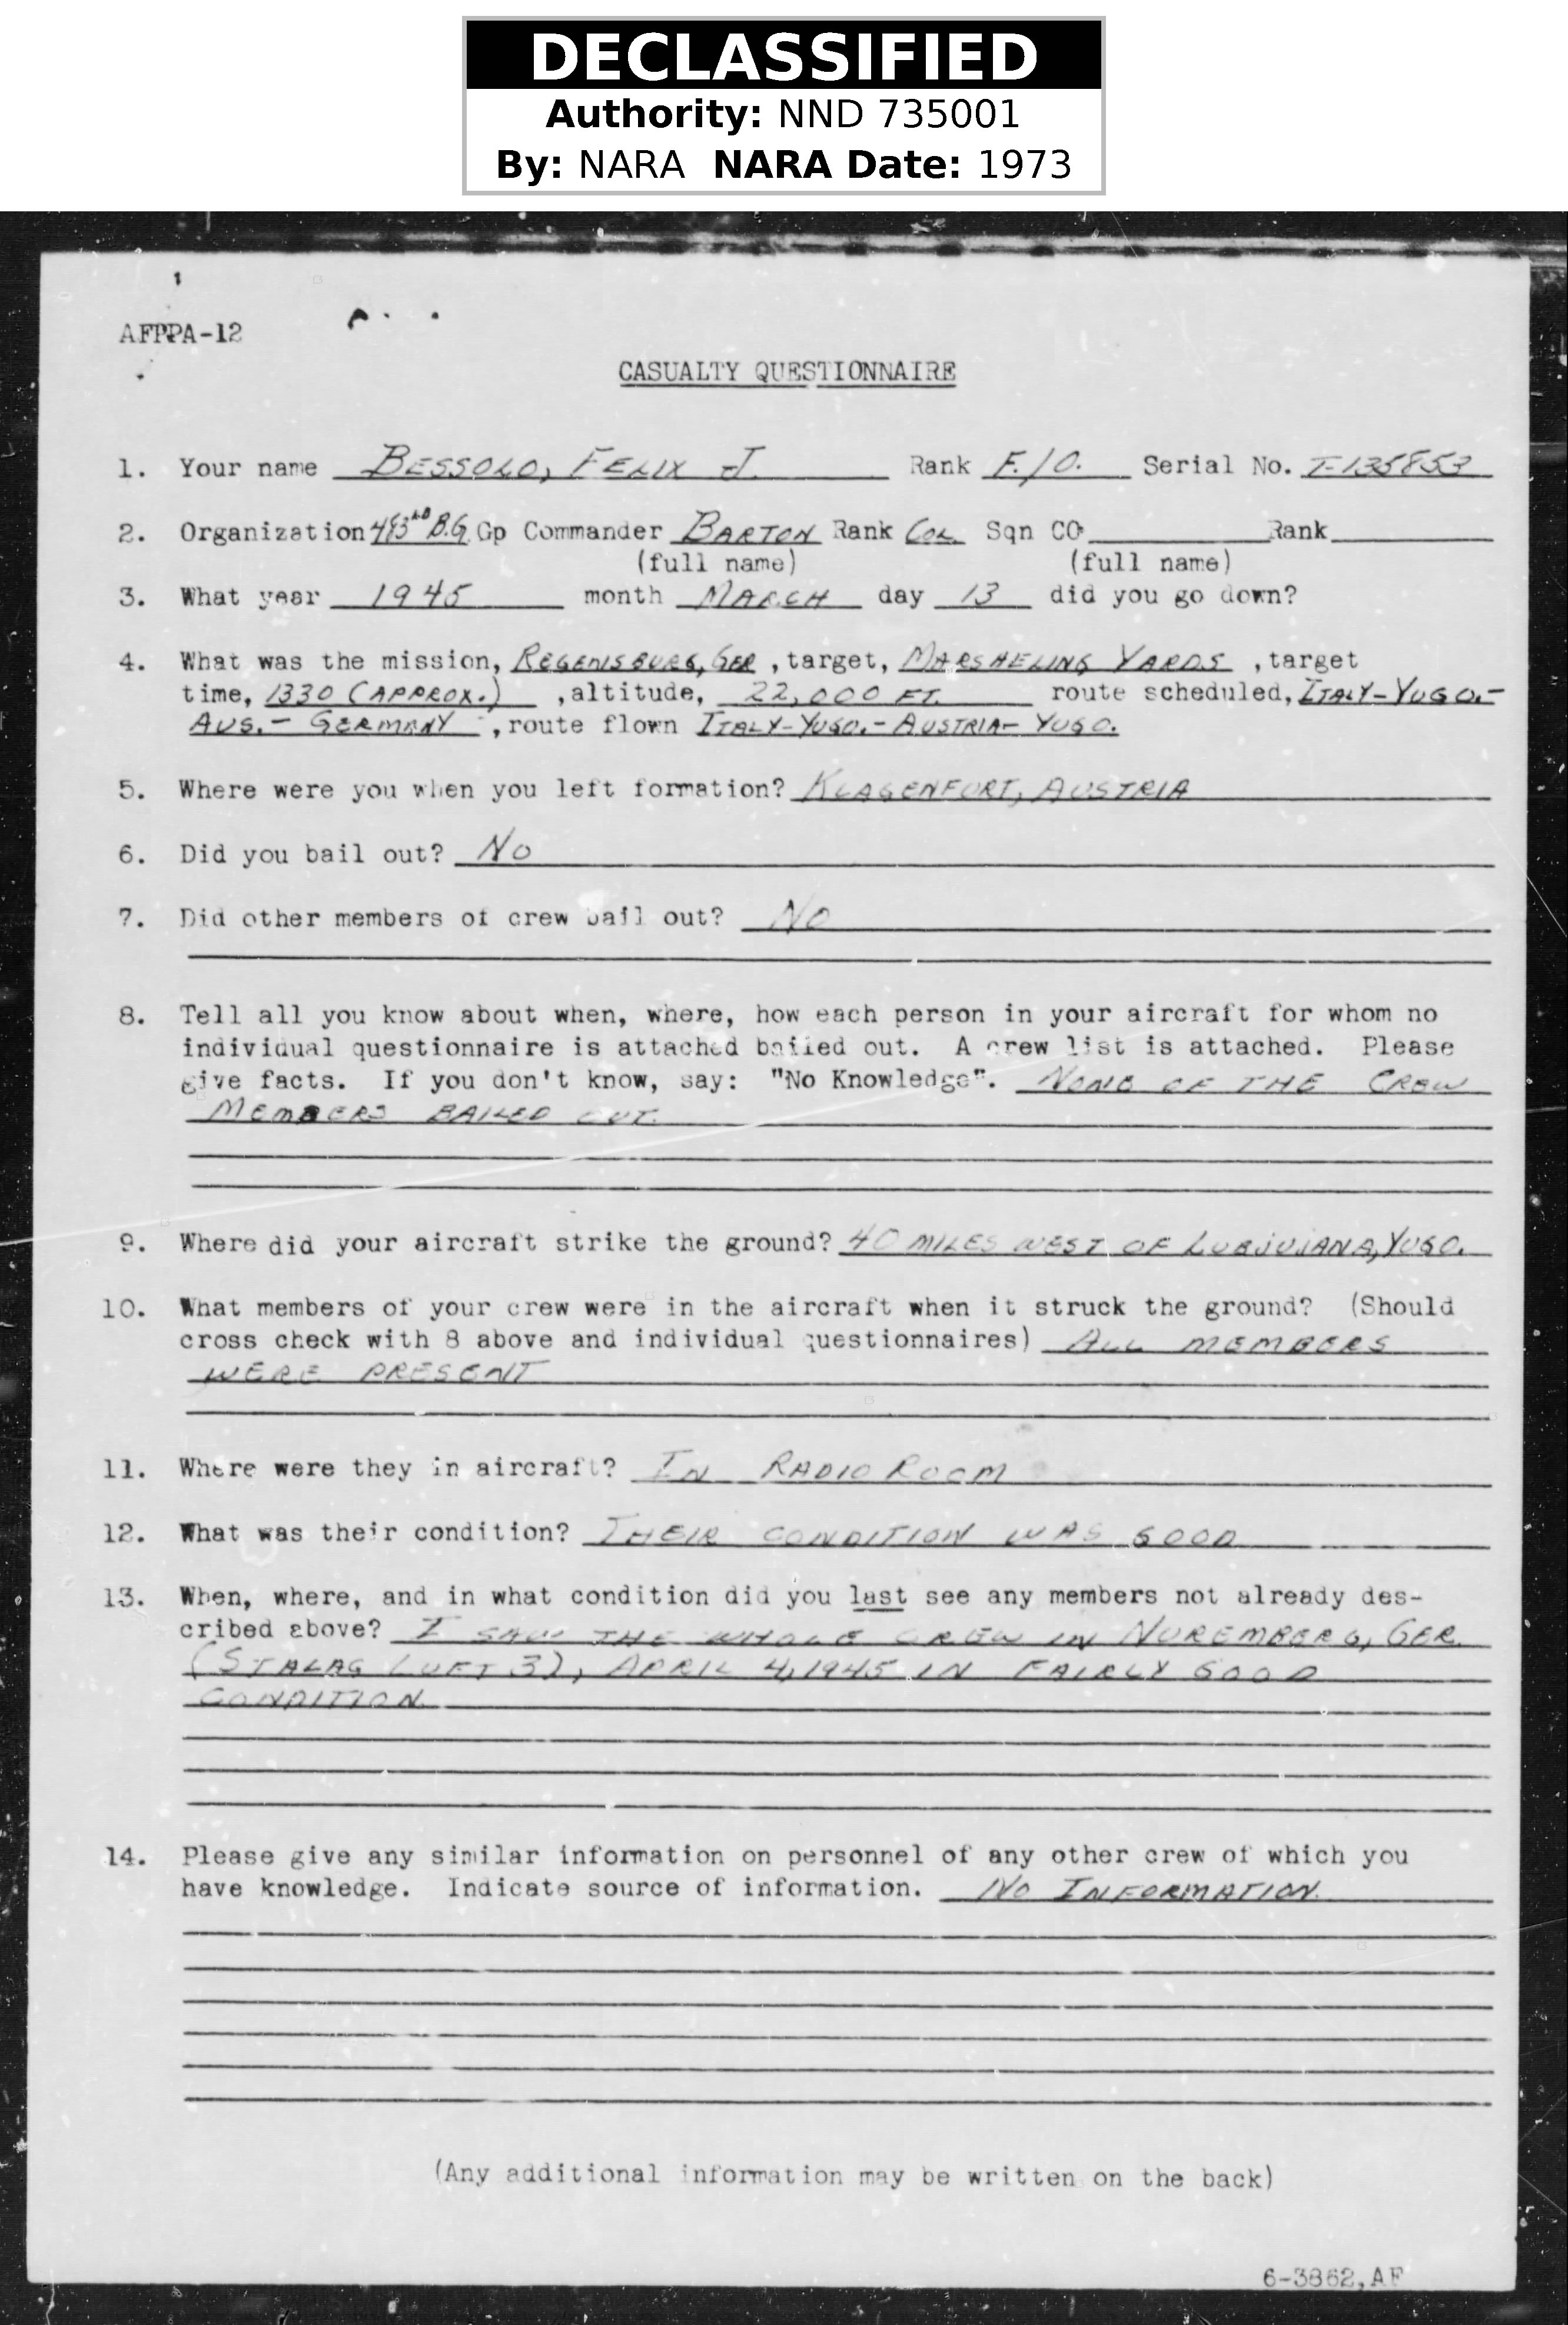 DECLASSIFIED
Authority: NND 735001
By: NARA NARA Date: 1973
AFPPA-12
CASUALTY QUESTIONNAIRE
1. Your name BESSOLO, FELIX J. Rank F./O. Serial No. T-135853
2. Organization 483RD B.G. Gp Commander BARTON Rank COL. Sqn CO Rank
(full name) (full name)
3. What year 1945 month MARCH day 13 did you go down?
4. What was the mission, REGENSBURG, GER, target, MARSHELING YARDS, target
time, 1330 (APPROX.), altitude, 22,000 FT. route scheduled, ITALY-YUGO.-
AUS.- GERMANY, route flown ITALY-YUGO.-AUSTRIA-YUGO.
5. Where were you when you left formation? KLAGENFURT, AUSTRIA
6. Did you bail out? NO
7. Did other members of crew bail out? NO
8. Tell all you know about when, where, how each person in your aircraft for whom no
individual questionnaire is attached bailed out. A crew list is attached. Please
give facts. If you don't know, say: "No Knowledge". NONE OF THE CREW
MEMBERS BAILED OUT.
9. Where did your aircraft strike the ground? 40 MILES WEST OF LUBJUJANA, YUGO.
10. What members of your crew were in the aircraft when it struck the ground? (Should
cross check with 8 above and individual questionnaires) ALL MEMBERS
WERE PRESENT
11. Where were they in aircraft? IN RADIO ROOM
12. What was their condition? THEIR CONDITION WAS GOOD
13. When, where, and in what condition did you last see any members not already des-
cribed above? I SAW THE WHOLE CREW IN NUREMBERG, GER.
(STALAG LUFT 3), APRIL 4, 1945 IN FAIRLY GOOD
CONDITION.
14. Please give any similar information on personnel of any other crew of which you
have knowledge. Indicate source of information. NO INFORMATION.
(Any additional information may be written on the back)
6-3862, AF